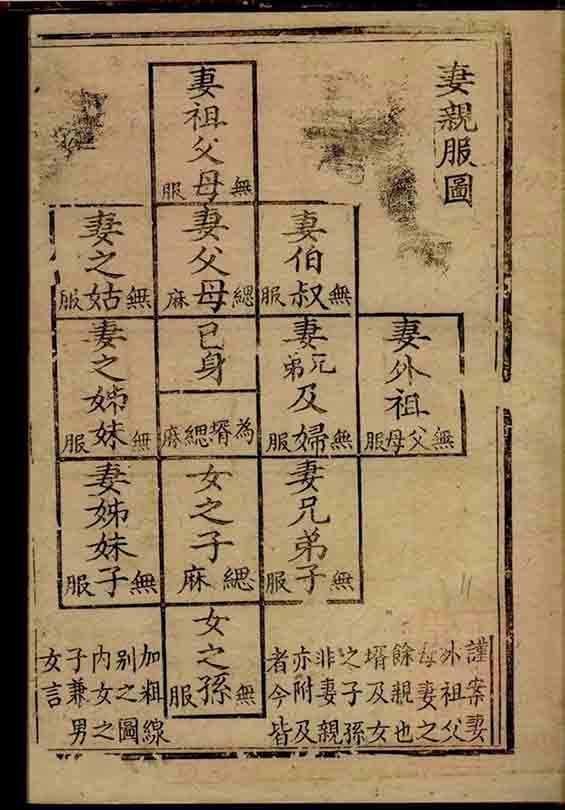 妻親服圖
妻祖父母無服
妻伯叔無服
妻父母緦麻
妻之姑無服
妻外祖父母無服
妻兄弟及婦無服
己身
為壻緦麻
妻之姊妹無服
妻兄弟子無服
女之子緦麻
妻姊妹子無服
女之孫無服
謹案妻
外祖父
母妻之
餘親也
壻及女
之子孫
非妻親
亦附及
者今皆
加粗線
別之圖
內女之
子兼男
女言
11